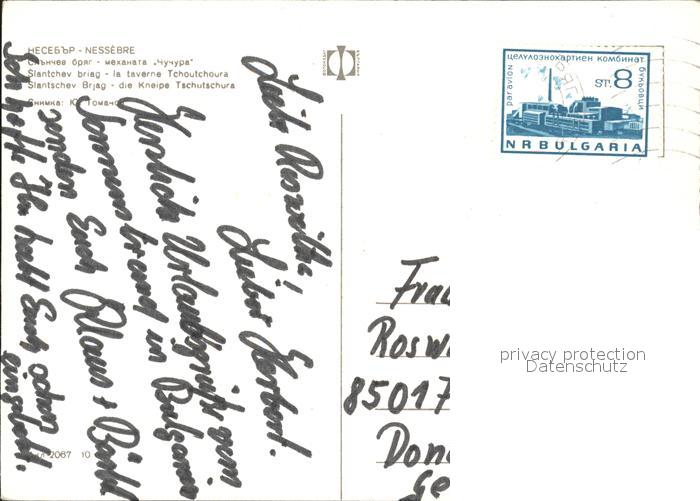 НЕСЕБЪР - NESSÈBRE
Слънчев бряг - механата „Чучура"
Slantchev briag - la taverne Tchoutchoura
Slantschev Brjag - die Kneipe Tschutschura
Снимка: К. Томанов
Liebe Roswitha,
Lieber Herbert.
Herzliche Urlaubsgrüße vom
Sonnenstrand in Bulgarien
senden Euch Klaus + Bärbel
Ich hoffe Ihr habt Euch schon
eingelebt.
целулознохартиен комбинат
par avion
букьовци
ST. 8
NR BULGARIA
Frau
Rosw
85017
Don
Ge
2067 10
privacy protection
Datenschutz